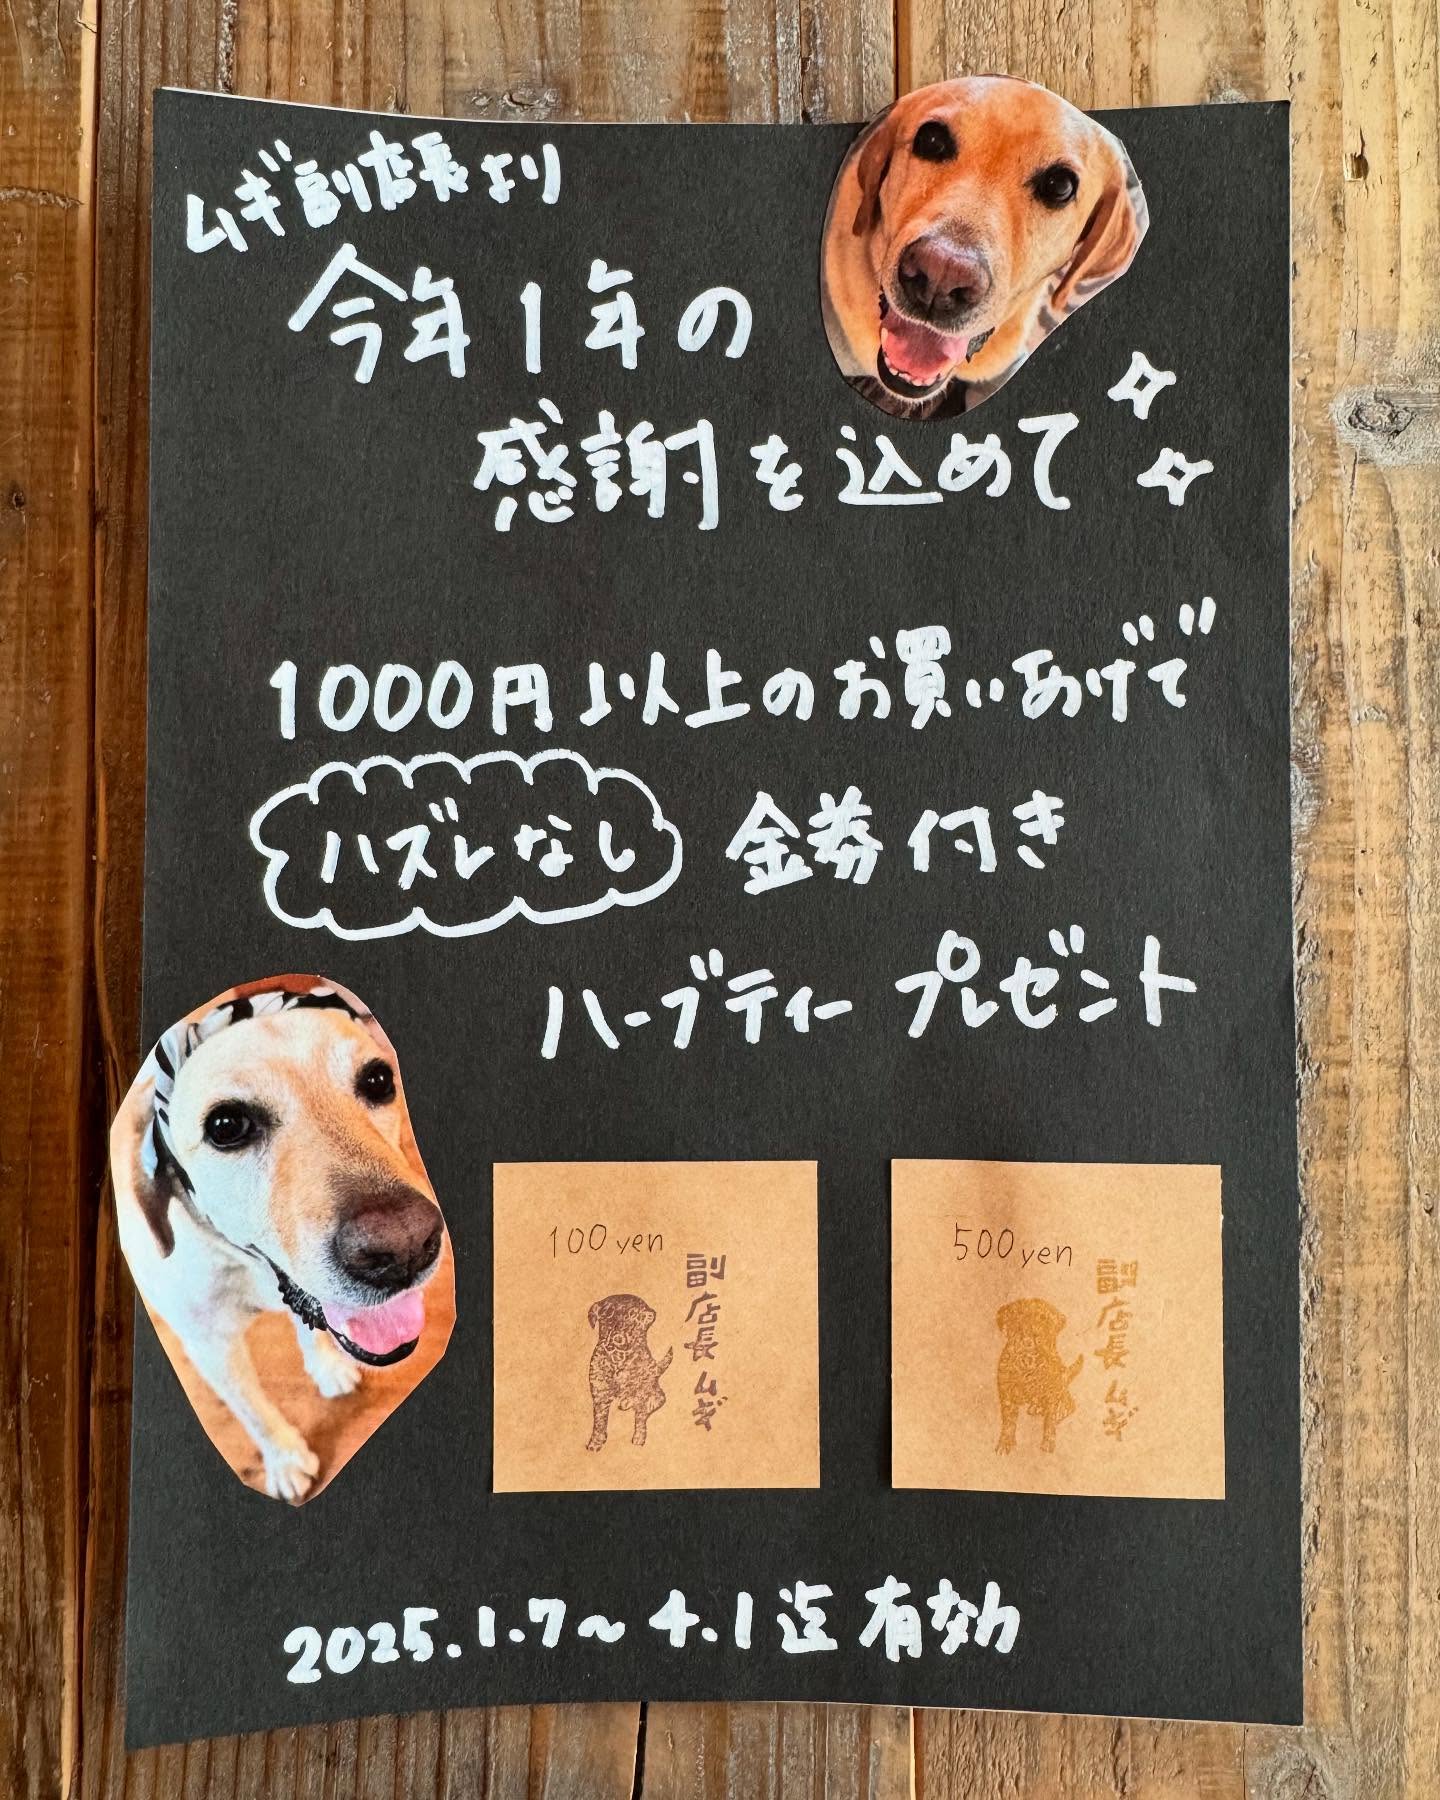 ムギ副店長より
今年1年の
感謝を込めて
1000円以上のお買いあげで
ハズレなし 金券付き
ハーブティー プレゼント
100yen
副店長ムギ
500yen
副店長ムギ
2025.1.7〜4.1迄有効